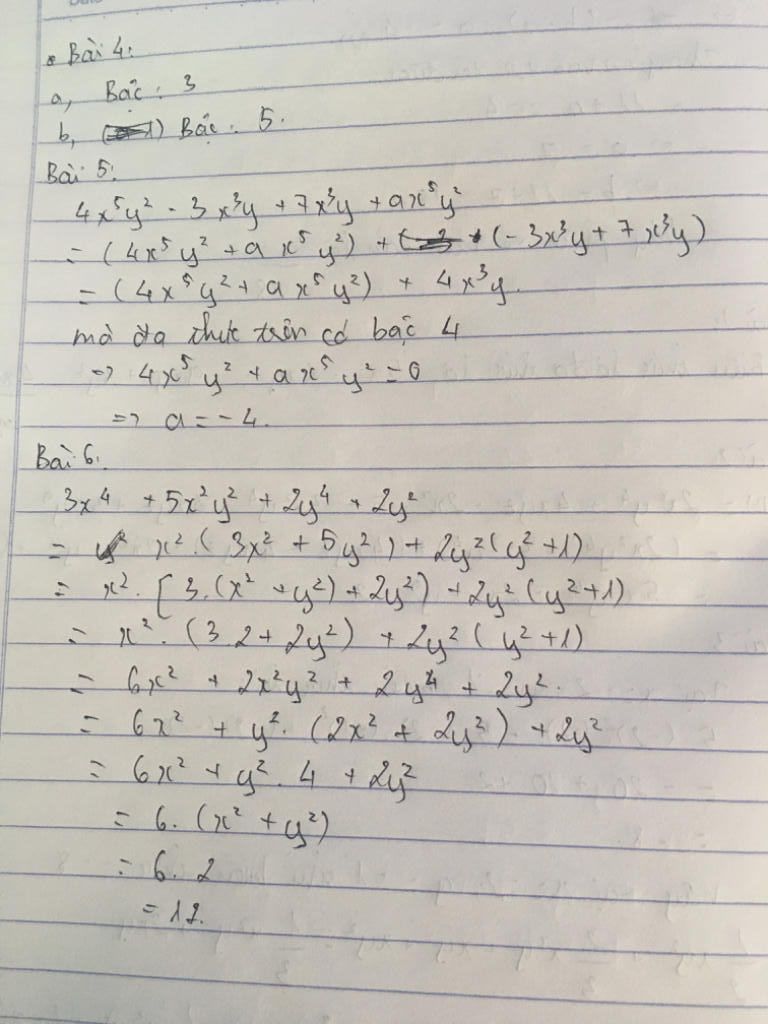 Bài 4:
a, Bậc: 3
b, Bậc: 5.
Bài 5:
4x⁵y² - 3x³y + 7x³y + ax⁵y²
= (4x⁵y² + a x⁵y²) + (-3x³y + 7x³y)
= (4x⁵y² + a x⁵y²) + 4x³y.
mà đa thức trên có bậc 4
=> 4x⁵y² + ax⁵y² = 0
=> a = -4.
Bài 6:
3x⁴ + 5x²y² + 2y⁴ + 2y²
= x².(3x² + 5y²) + 2y²(y² + 1)
= x².[3.(x² + y²) + 2y²) + 2y²(y² + 1)
= x².(3.2 + 2y²) + 2y²(y² + 1)
= 6x² + 2x²y² + 2y⁴ + 2y².
= 6x² + y².(2x² + 2y²) + 2y²
= 6x² + y².4 + 2y²
= 6.(x² + y²)
= 6.2
= 12.